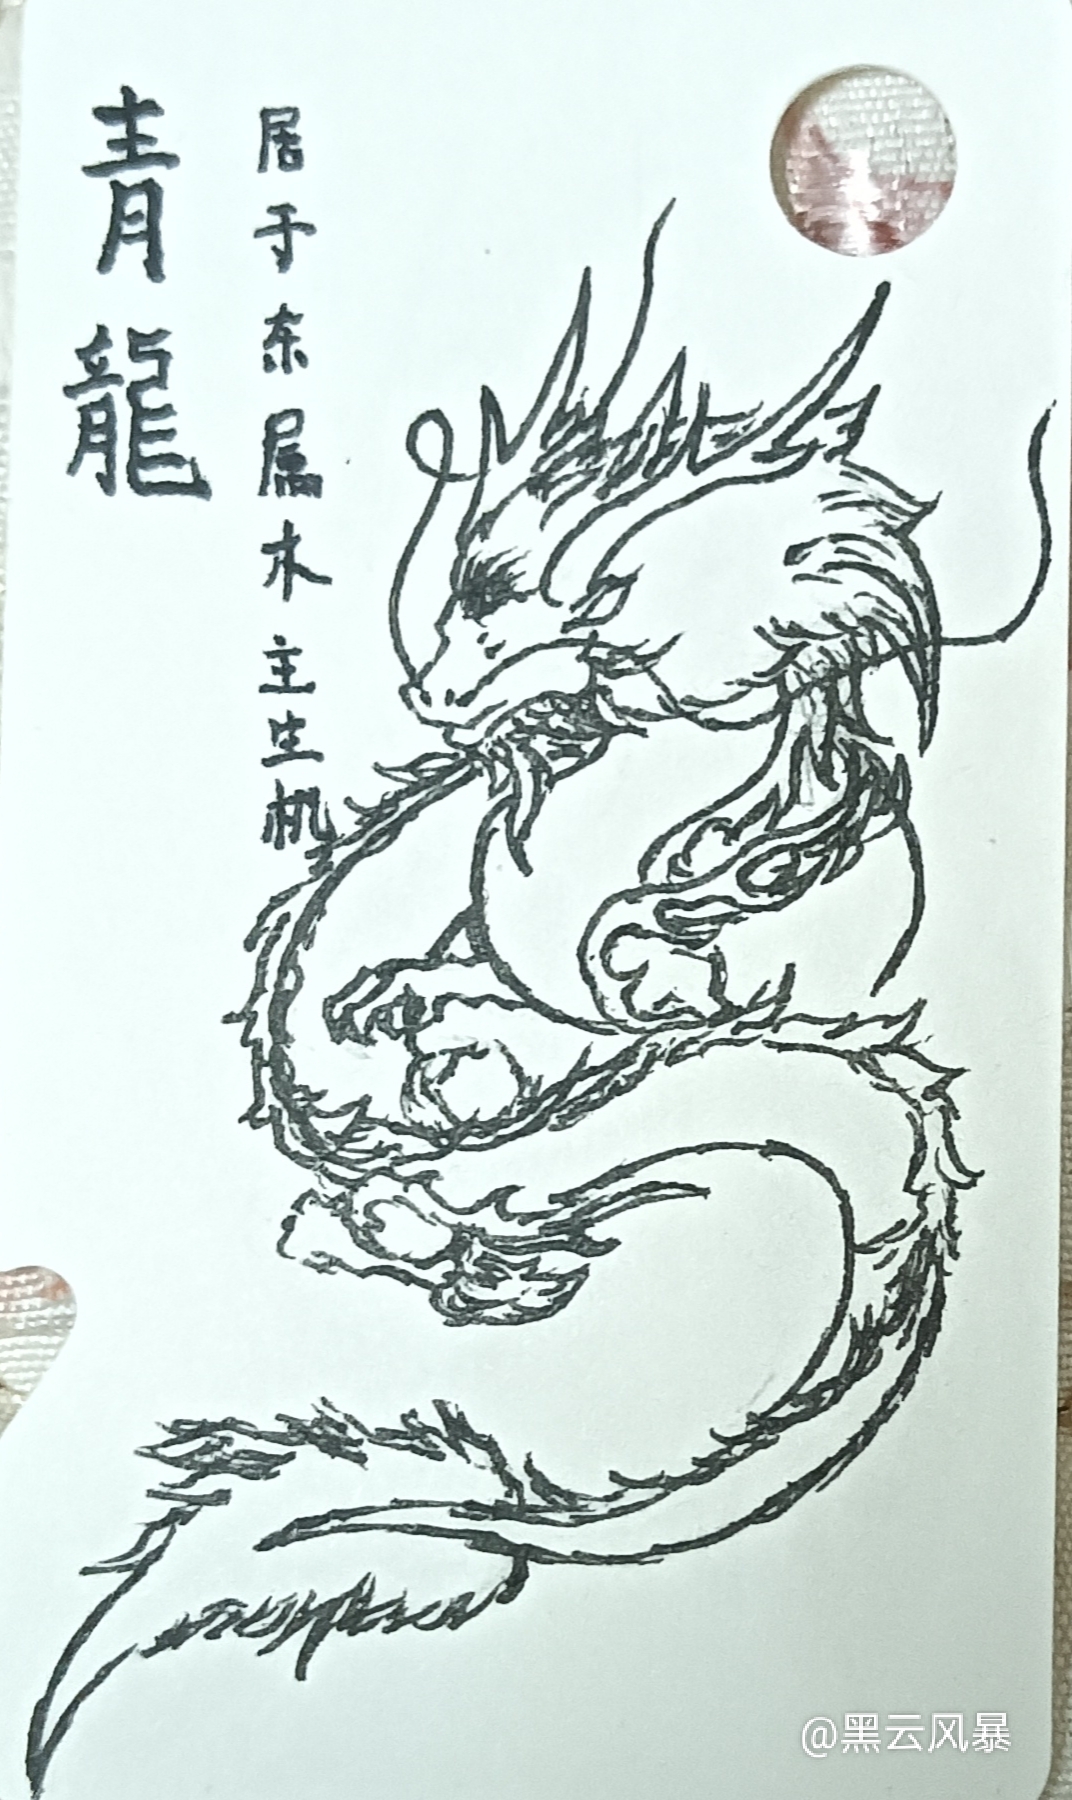 青龍
居于东属木主生机
@黑云风暴